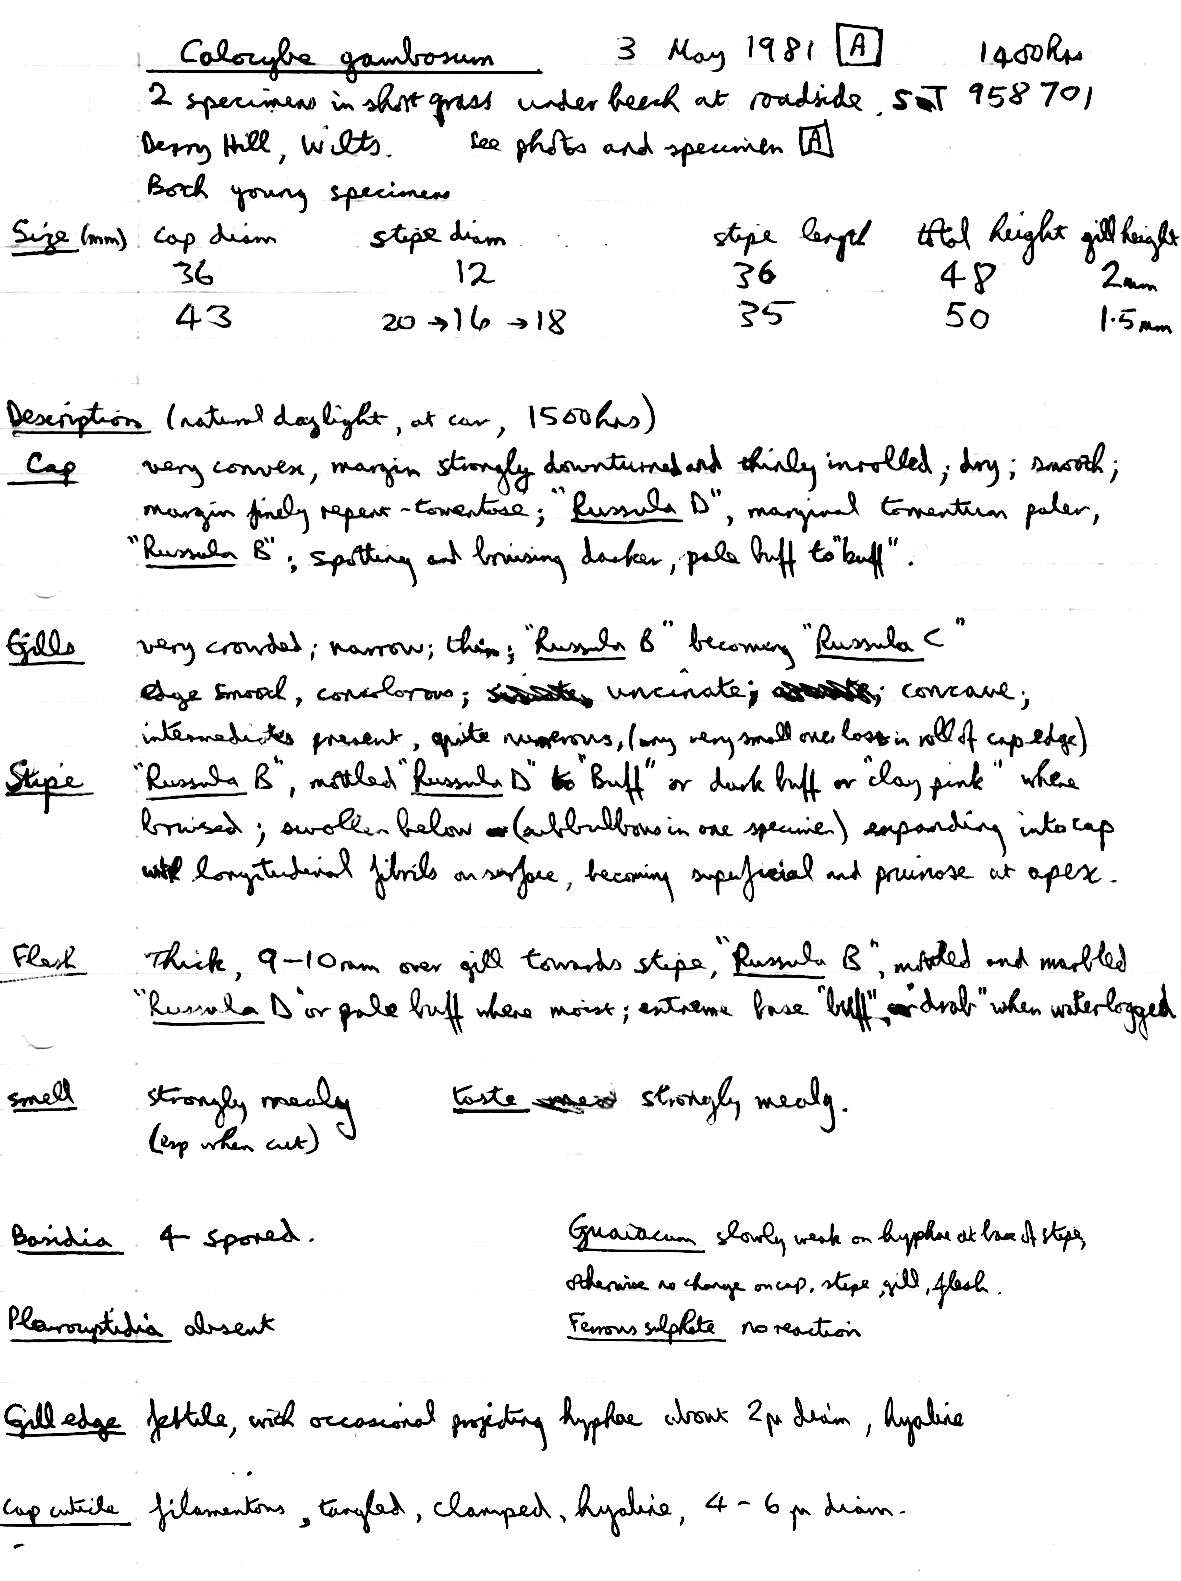 Calocybe gambosum 3 May 1981 A 1400hrs
2 specimens in short grass under beech at roadside. ST 958701
Derry Hill, Wilts. See photos and specimen A
Both young specimens
Size (mm) cap diam stipe diam stipe length total height gill height
36 12 36 48 2mm
43 20→16→18 35 50 1.5mm
Description (natural daylight, at car, 1500hrs)
Cap very convex, margin strongly downturned and thinly inrolled; dry; smooth;
margin finely repent-tomentose; "Russula D", marginal tomentum paler,
"Russula B"; spotting and bruising darker, pale buff to "buff".
Gills very crowded; narrow; thin; "Russula B" becoming "Russula C"
edge smooth, concolorous; uncinate; concave;
intermediates present, quite numerous, (any very small ones lost in roll of cap edge)
Stipe "Russula B", mottled "Russula D" to "Buff" or dark buff or "clay pink" where
bruised; swollen below (subbulbous in one specimen) expanding into cap
with longitudinal fibrils on surface, becoming superficial and pruinose at apex.
Flesh Thick, 9-10mm over gill towards stipe, "Russula B", mottled and marbled
"Russula D" or pale buff where moist; extreme base "buff", "drab" when waterlogged
smell strongly mealy taste strongly mealy.
(esp when cut)
Basidia 4-spored. Guaiacum slowly weak on hyphae at base of stipe,
otherwise no change on cap, stipe, gill, flesh.
Pleurocystidia absent Ferrous sulphate no reaction
Gill edge fertile, with occasional projecting hyphae about 2µ diam, hyaline
Cap cuticle filamentous, tangled, clamped, hyaline, 4-6 µ diam.